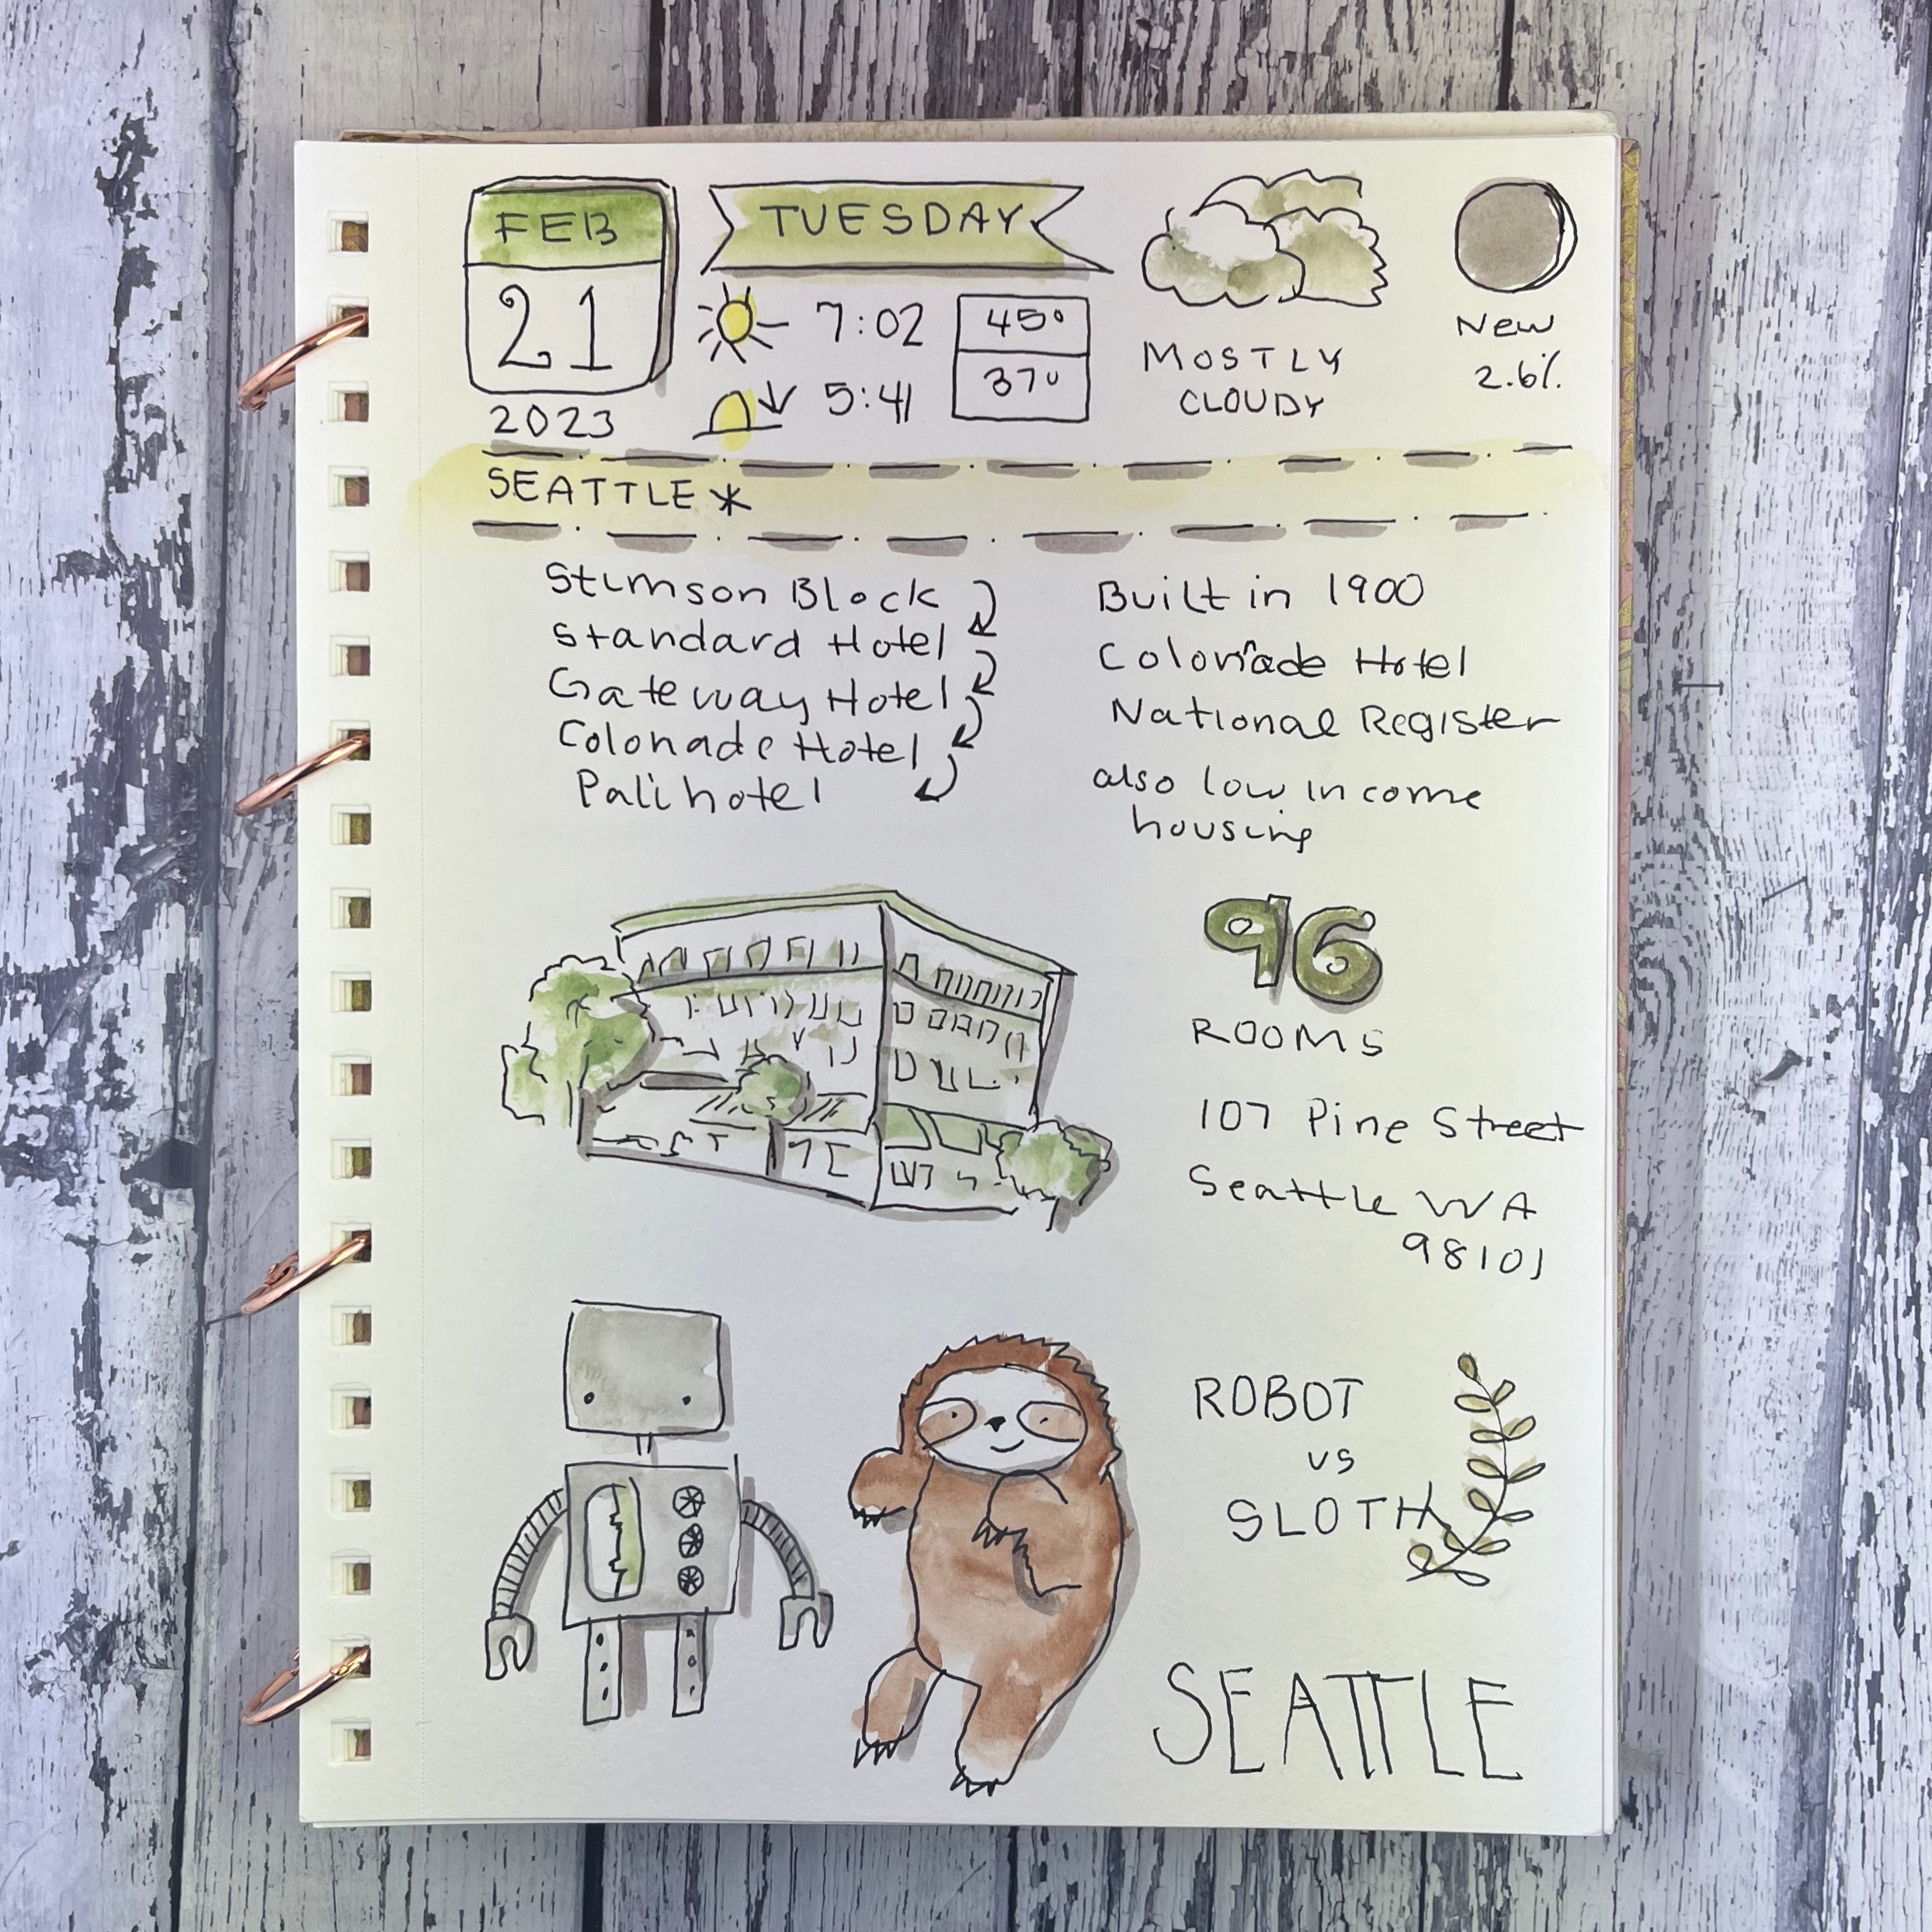 FEB
21
2023
TUESDAY
7:02
5:41
45°
37°
MOSTLY
CLOUDY
New
2.6%
SEATTLE *
Stimson Block
Standard Hotel
Gateway Hotel
Colonade Hotel
Palihotel
Built in 1900
Colonade Hotel
National Register
also low income
housing
96
ROOMS
107 Pine Street
Seattle WA
98101
ROBOT
vs
SLOTH
SEATTLE